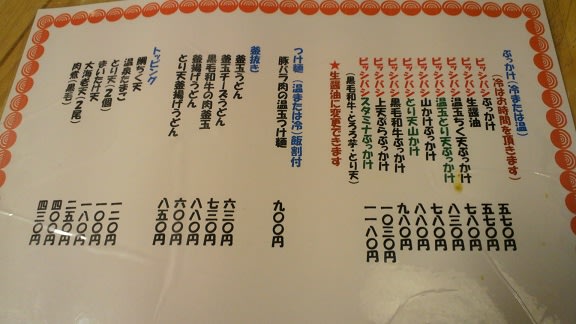 ぶっかけ（冷または温）
（冷はお時間を頂きます）
ピッシバシ ぶっかけ 五七〇円
ピッシバシ 生醤油 五七〇円
ピッシバシ 温玉ちく天ぶっかけ 七八〇円
ピッシバシ 温玉とり天ぶっかけ 八三〇円
ピッシバシ 山かけぶっかけ 七八〇円
ピッシバシ とり天山かけ 八八〇円
ピッシバシ 上天ぷらぶっかけ 九八〇円
ピッシバシ 黒毛和牛ぶっかけ 一〇三〇円
ピッシバシ スタミナぶっかけ 一一八〇円
（黒毛和牛・とろろ芋・とり天）
★生醤油に変更できます
つけ麺（温または冷）飯割付
豚バラ肉の温玉つけ麺 九〇〇円
釜抜き
釜玉うどん 六三〇円
釜玉チーズうどん 七三〇円
黒毛和牛の肉釜玉 八八〇円
釜揚げうどん 六〇〇円
とり天釜揚げうどん 八五〇円
トッピング
鯛ちく天 一二〇円
温泉たまご 一〇〇円
とり天（２個） 一八〇円
まいたけ天 二五〇円
大海老天（２尾） 四〇〇円
肉煮（黒毛） 四三〇円